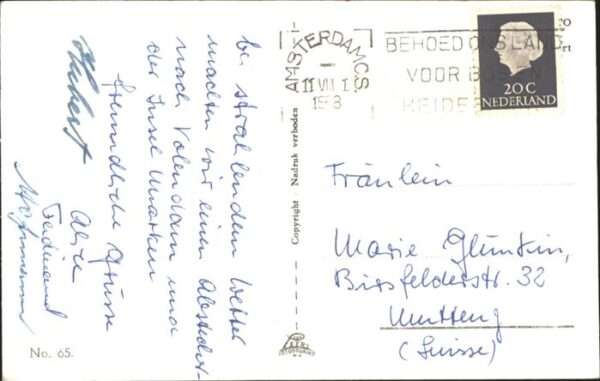 bei strahlendem Wetter
machten wir einen Abstecher
nach Volendam und
der Insel Marken
freundliche Grüsse
Hubert
Alice
Ferdinand
No. 65.
Copyright - Nadruk verboden
AMSTERDAM CS
11 VIII
BEHOED ONS LAND
VOOR
HEIDE
20 C
NEDERLAND
Fräulein
Marie
Birsfelderstr. 32
Muttenz
(Suisse)